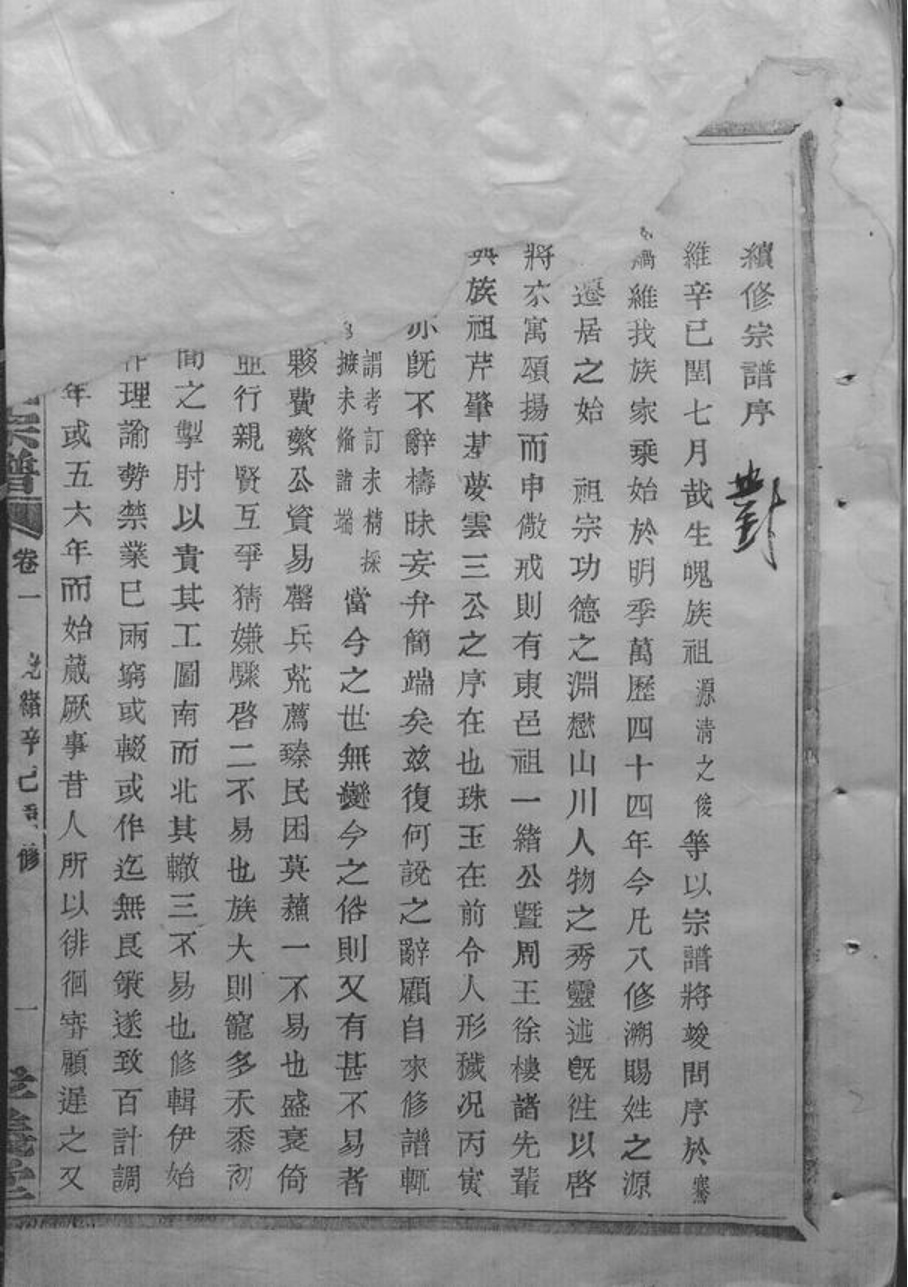 續修宗譜序
對
維辛巳閏七月哉生魄族祖源清之俊等以宗譜將竣問序於騫
維我族家乘始於明季萬歷四十四年今凡八修溯賜姓之源
遷居之始 祖宗功德之淵懋山川人物之秀靈述旣徃以啓
將來寓頌揚而申儆戒則有東邑祖一緒公曁周王徐樓諸先輩
與族祖芹肇基夢雲三公之序在也珠玉在前令人形穢况丙寅
亦旣不辭檮昧妄弁簡端矣兹復何說之辭顧自來修譜輒
謂考訂未精採擴未偹諸端當今之世無變今之俗則又有甚不易者
夥費繁公資易罄兵荒薦臻民困莫蘓一不易也盛衰倚
並行親賢互爭猜嫌驟啓二不易也族大則寵多禾黍初
間之掣肘以責其工圖南而北其轍三不易也修輯伊始
作理諭勢禁業巳兩窮或輟或作迄無良策遂致百計調
年或五六年而始蕆厥事昔人所以徘徊審顧遲之又
宗譜 卷一 光緒辛巳重修 一